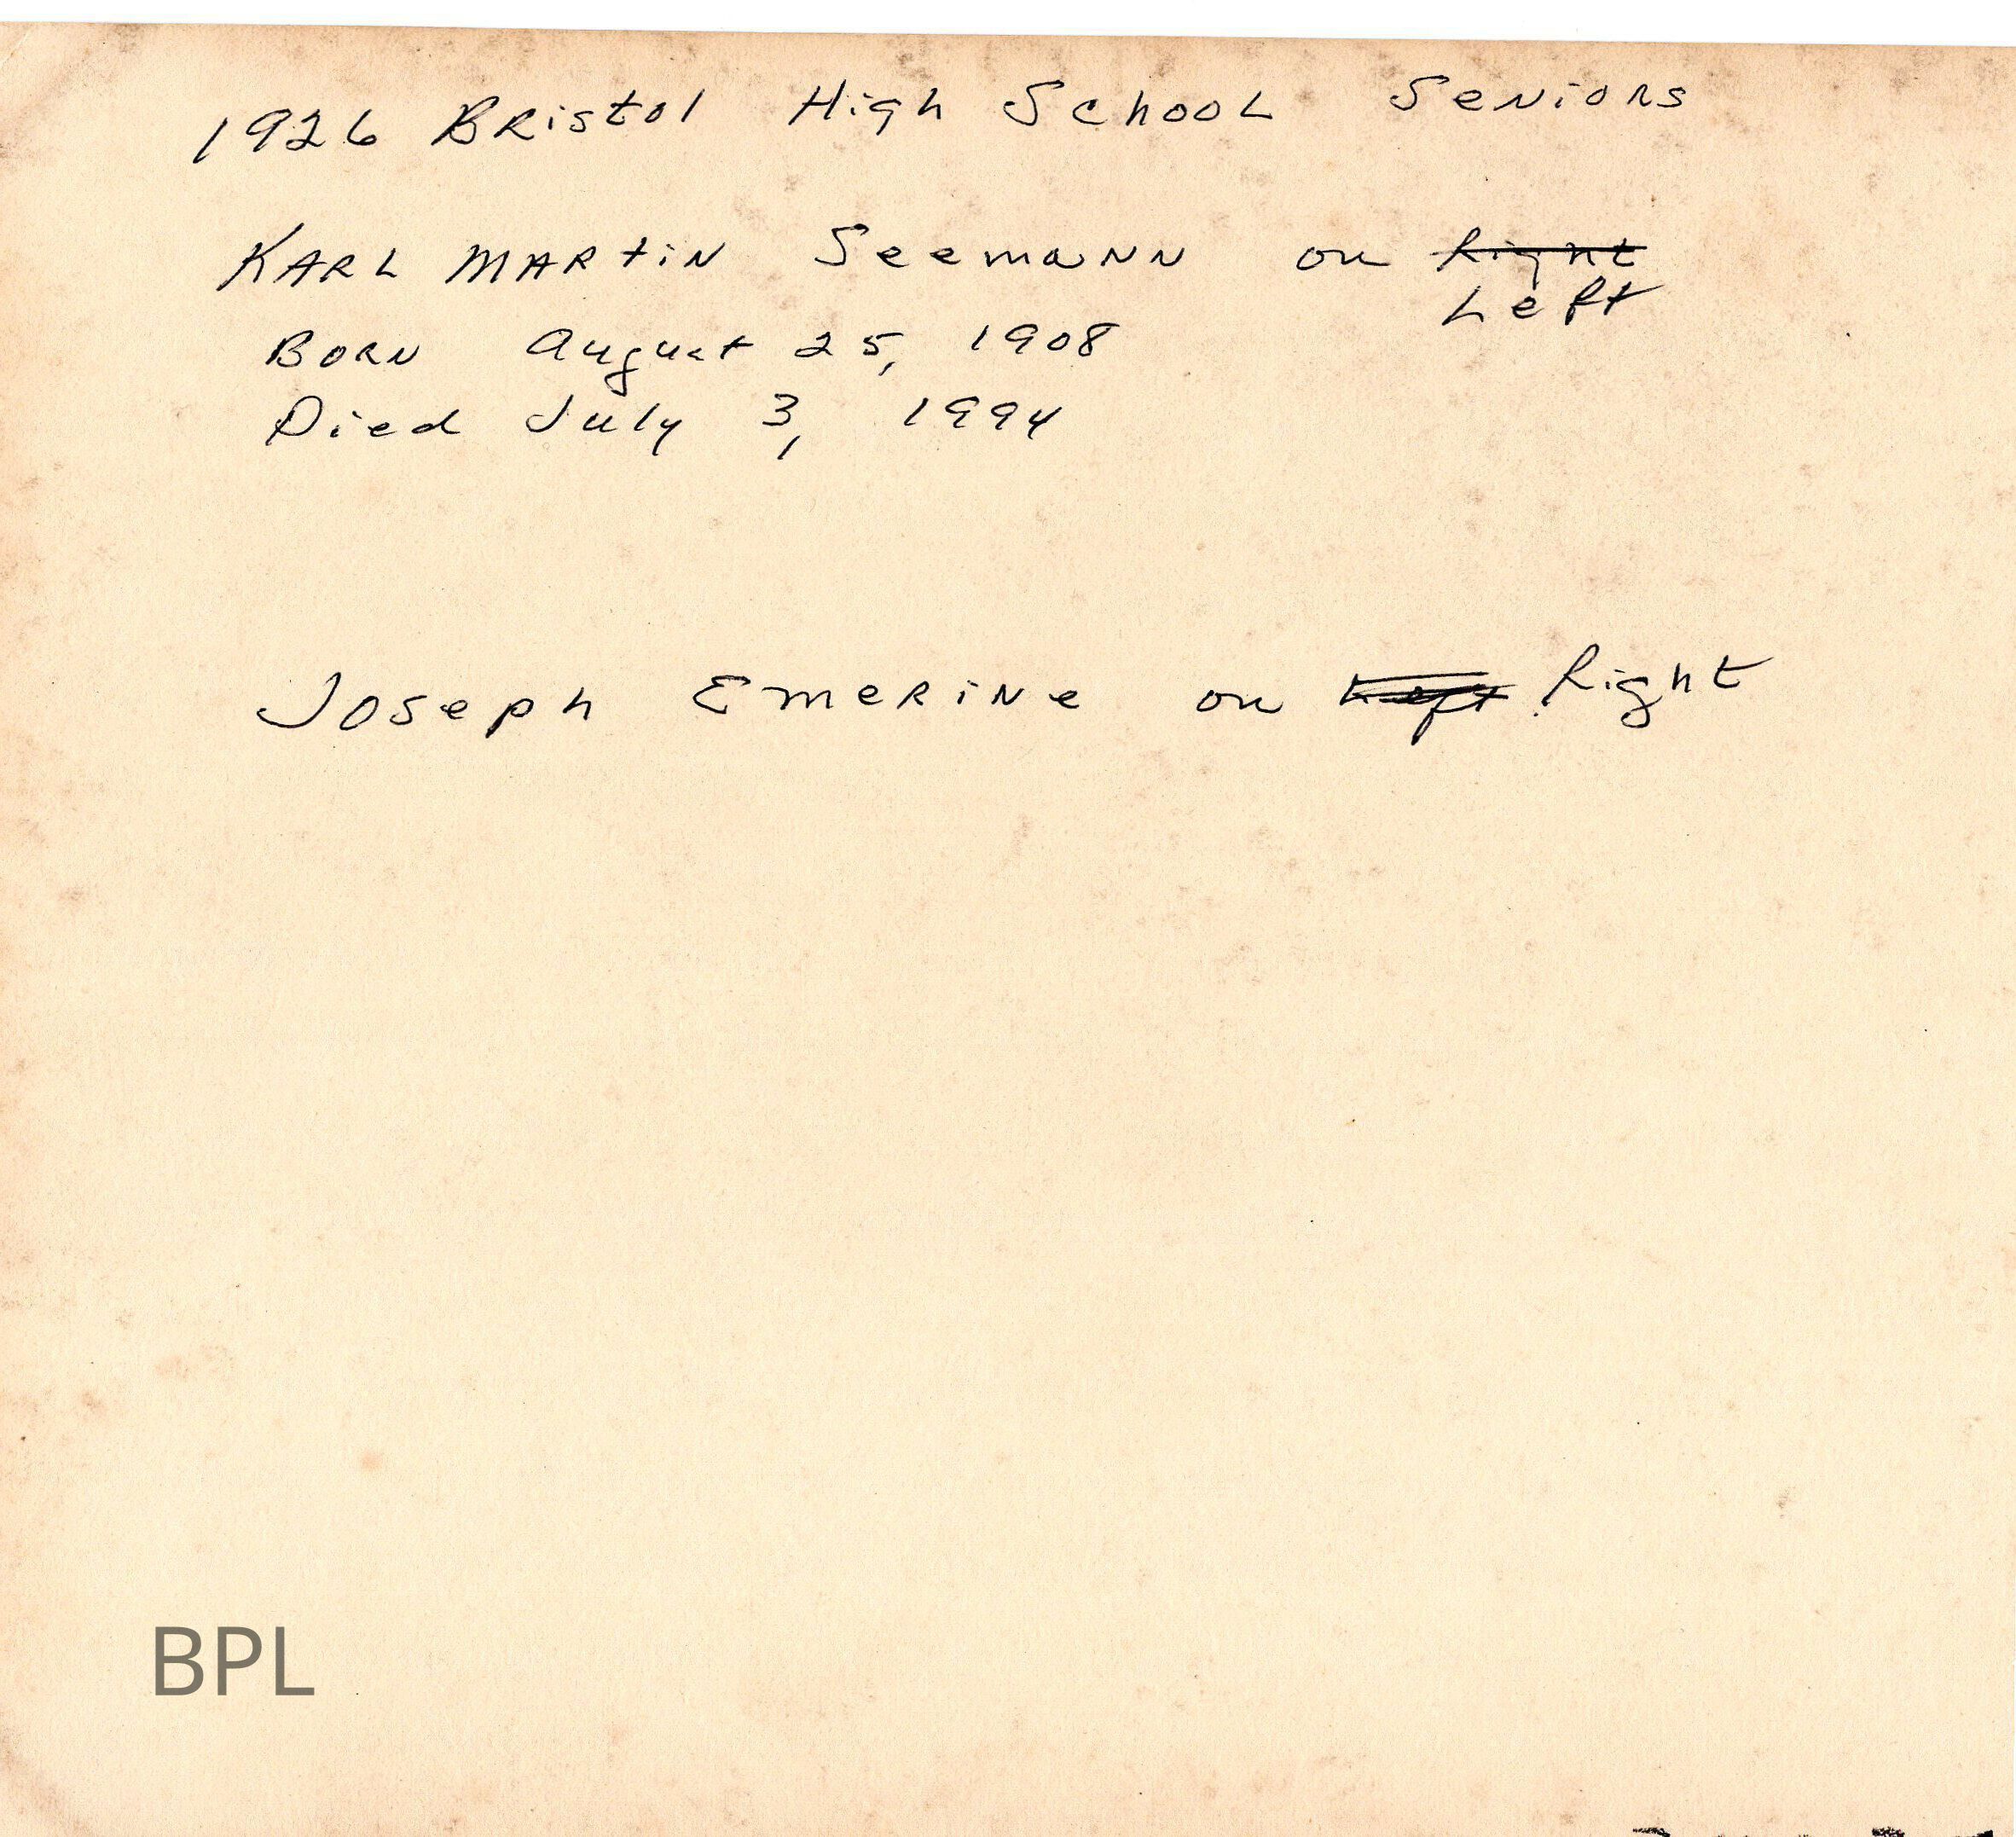 1926 Bristol High School Seniors
Karl Martin Seemann on Right
Left
Born August 25, 1908
Died July 3, 1994
Joseph Emerine on Left Right
BPL